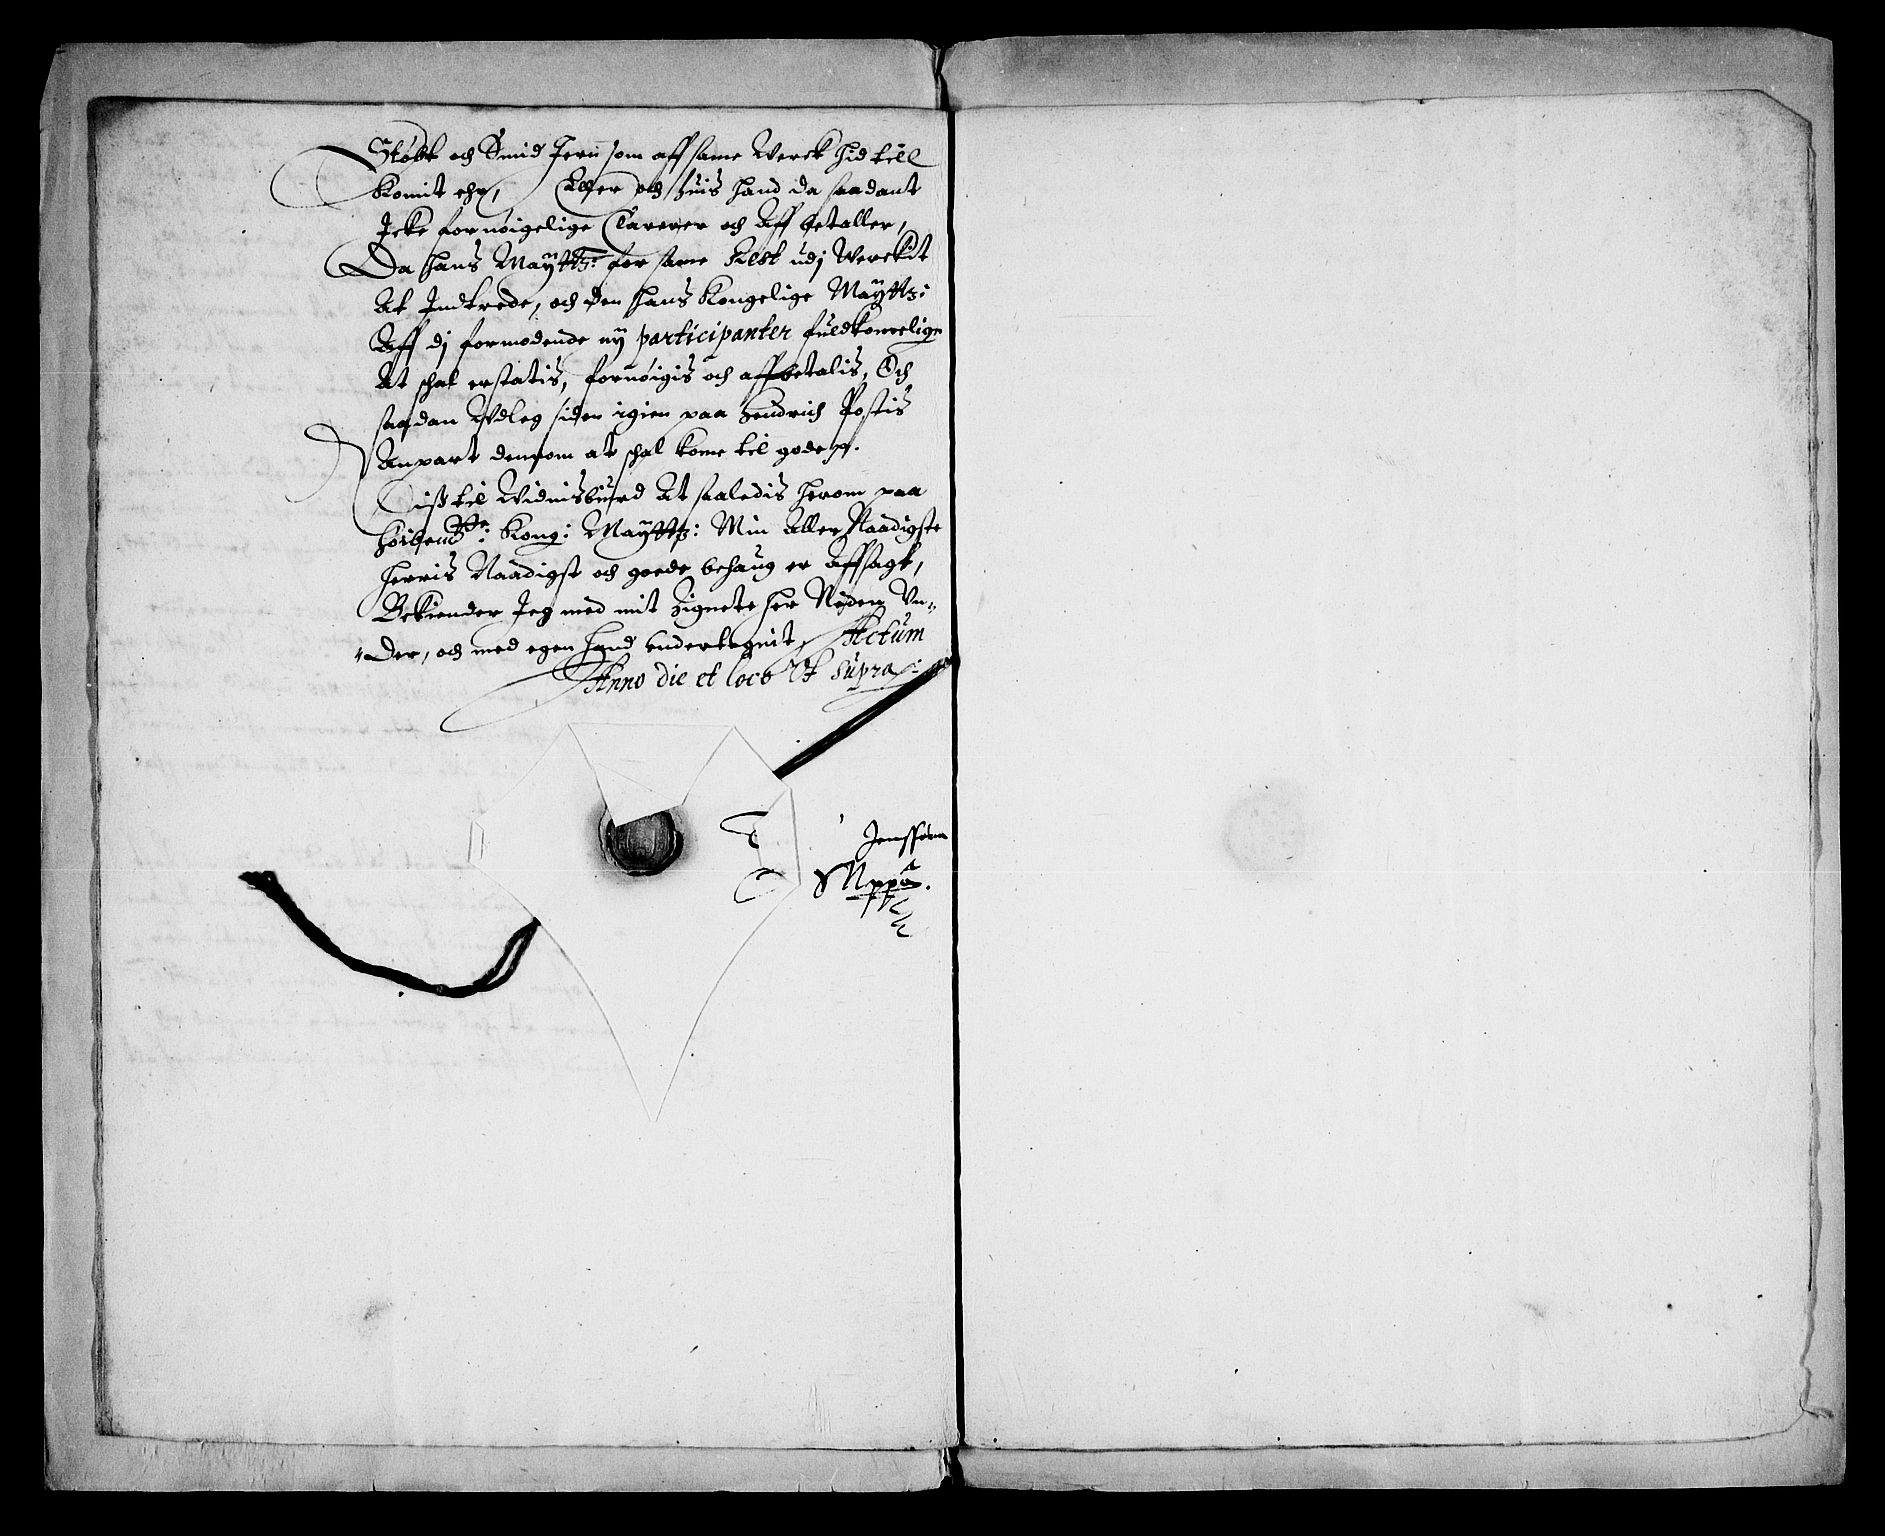 Støbt och Smid Jern som aff same Werck hid till
Komit ehr, Eller och huis hand da saadant
Jcke fornøigelige Clarerer och Aff betaller,
Da Hans Maÿttz: for same Rest udj Werckit
At Jndtrede, och den Hans Kongelige Maÿttz:
Aff dj formodende nÿ participanter fuldkomelige
At schal erstatis, fornøigis och affbetalis, Och
saadan Vdleg siden igien paa Hendrich Postis
Anpart dennom at schal kome til gode
Diß til Widnisbiurd At saaledis herom paa
Høibem: Kong: Maÿttz: Min Aller Naadigste
Herris Naadigst och goede behaug er Affsagt,
Bekiender Jeg med mit Zignete her Neden Vn„
„Der, och med egen Hand undertegnit, Actum
Anno die et loco Vt Supra:
Mppa.